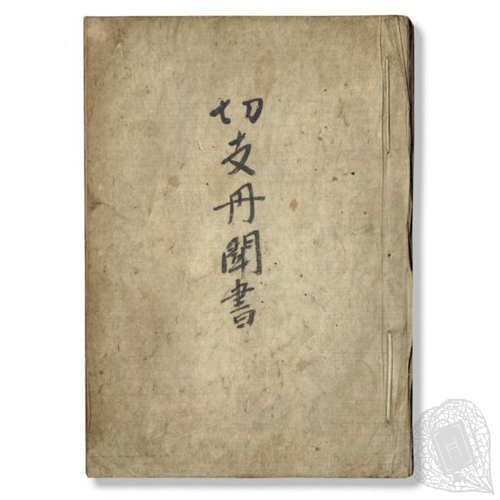 切支丹聞書